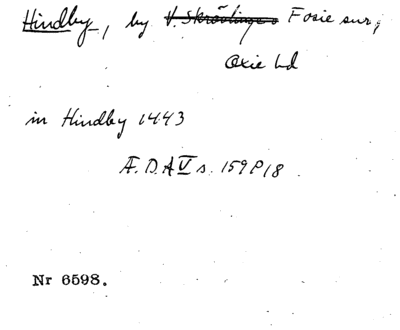 Hindby, by V. Skrävlinge s Fosie sn,
Oxie hd
in Hindby 1443
Æ.D.A V s. 159 P 18.
Nr 6598.